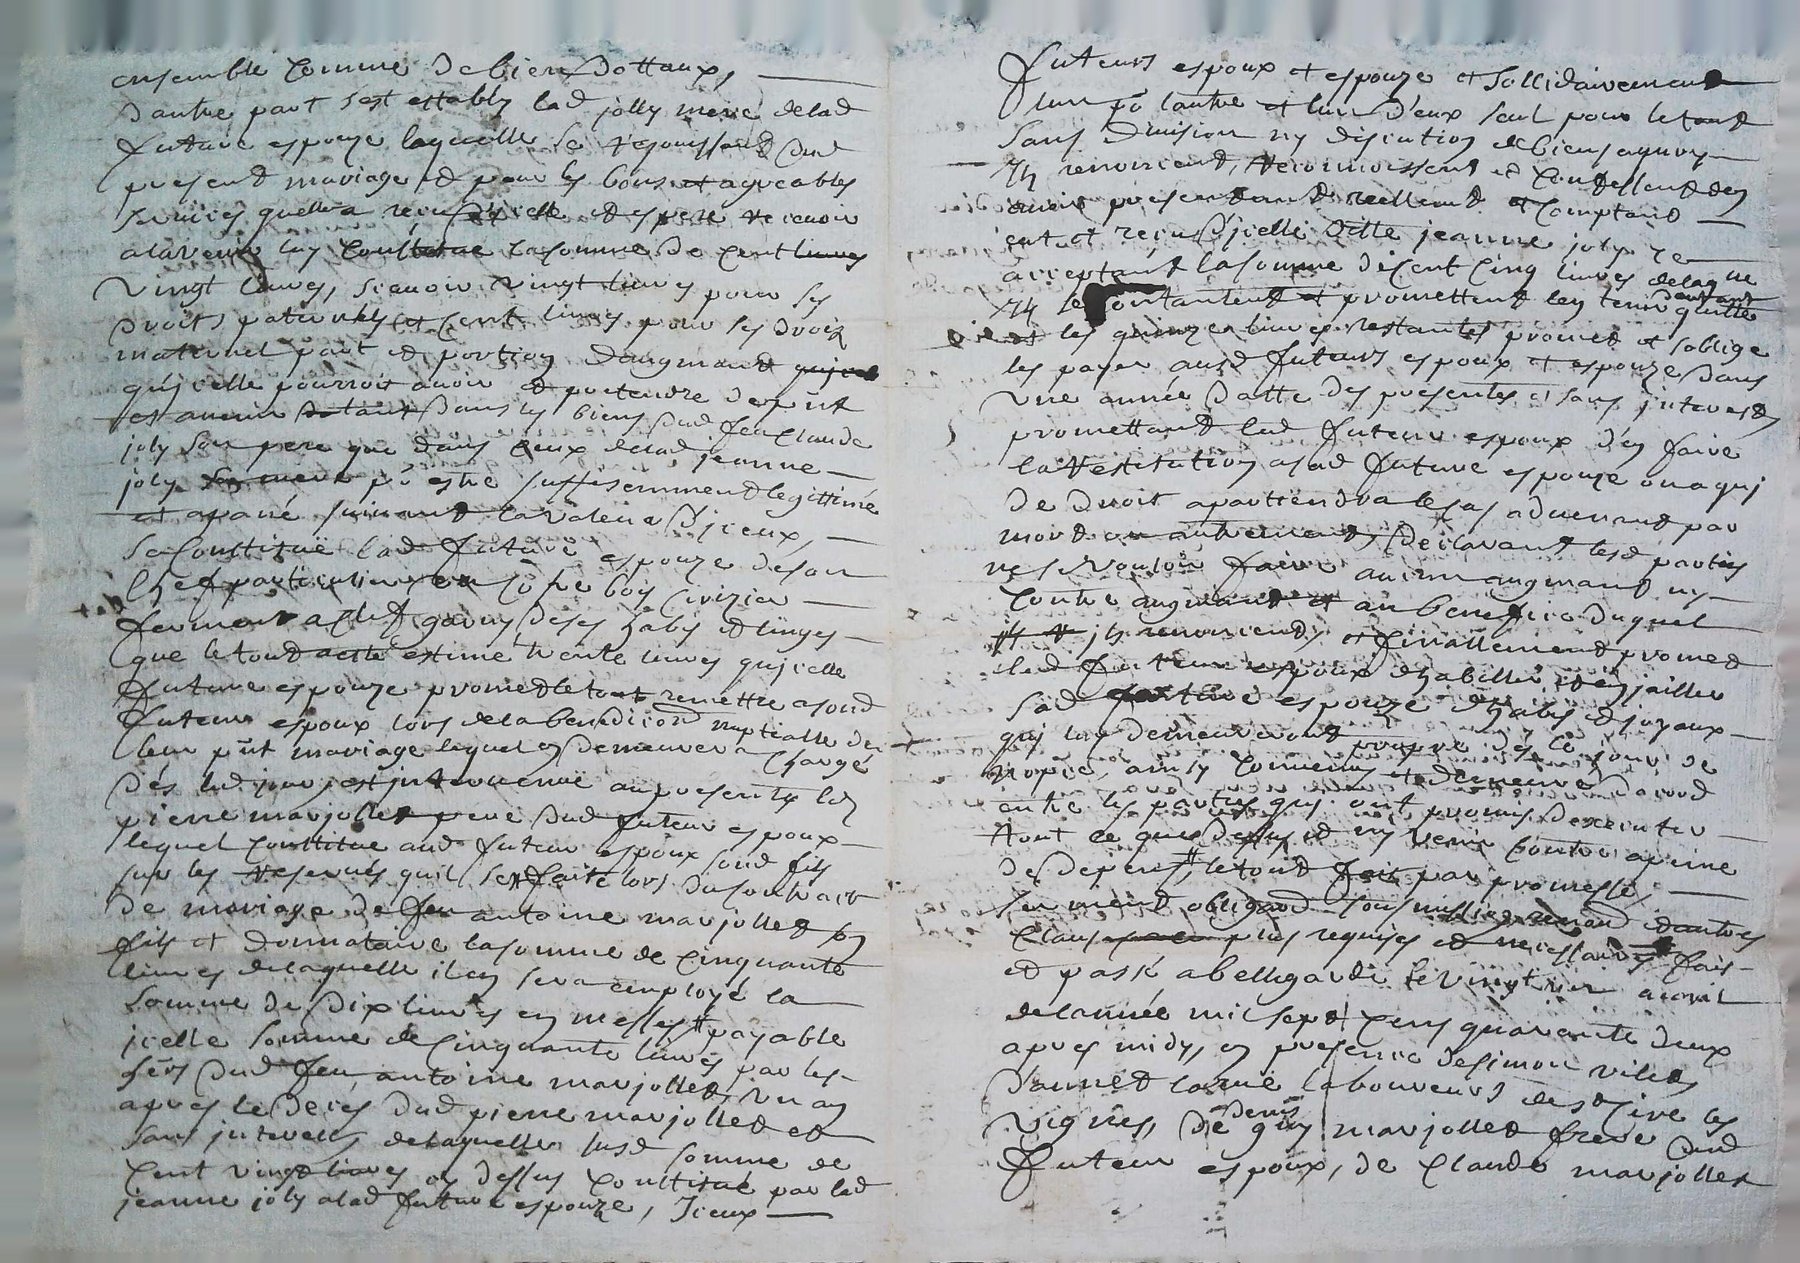 ensemble comme de bien dottaux,
d'autre part s'est estably lad jolly mere de lad
future espouze laquelle se resouissant dud
present mariage et pour les bons et agreables
services quelle a receu d'icelle et espere recevoir
a laveniir luy constitue la somme de cent
vingt livres, scavoir vingt livres pour ses
droits paternels et cent livres pour ses droiz
maternel part et portion daugmand
qu'jcelle pourroit avoir et pretendre de pnt
et avenir dans les biens dud feu Claude
joly son pere que dans ceux de lad jeanne
joly pr estre suffisemment legittimé
et apané suivant la valeur d'jceux,
se constitue lad future espouze de son
chef particulier un cofre bois cerizier
fermant a clef garny de ses habis et linges
que le tout a esté estimé trente livres qu'jcelle
future espouze promet le tout remettre a sond
futeur espoux lors de la benediction nuptialle de
leur pnt mariage lequel en demeurera chargé
dés led jour, est jntervenue au presente led
pierre marjollet pere dud futeur espoux
lequel constitue aud futeur espoux sond fils
sur les reserves quil sest faite lors du contract
de mariage de feu antoine marjollet son
fils et donnataire la somme de cinquante
livres de laquelle il en sera employé la
somme de dix livres en messes # payable
jcelle somme de cinquante livres par les
hers dud feu antoine marjollet, un an
apres le deces dud pierre marjollet et
sans jnterests de laquelle susd somme de
cent vingt livres cy dessus constitué par lad
jeanne joly a lad future espouze, Jceux
futeurs espoux et espouze et sollidairement
l'un pr lautre et lun d'eux seul pour le tout
sans division ny discution de biens aquoy
ilz renoncent, reconnoissent et confessent
avoir presentement reellemt et comptant
eut et receu d'jcelle ditte jeanne joly ce
acceptant la somme de cent cinq livres de laq
ilz se contantent et promettent len tenir quitte
et les quinze livres restantes promet et soblige
les payer ausd futeurs espoux et espouze dans
une année datte des presentes et sans jnterests
promettant led futeur espoux d'en faire
la restitution a sad future espouze ou a qui
de droit apartiendra le cas advenant par
mort ou autrement, declarant lesd parties
ne vouloir faire aucun augmand ny
contre augmand et au benefice duquel
ilz renoncent, et finallement promet
led futeur espoux d'habiller et enjailler
sad future espouze d'habis et joyaux
qui luy demeureront propre dés le jour de
nopce, ainsy convenu et demeuré dacord
entre les parties qui ont promis dexecuter
tout ce que dessus et ny venir contre apeine
de depens, # le tout fait par promesse,
serment, obligaon soumission renonon et autres
clauses plus requises et necessaires fait
et passé a bellegarde le vingt un avril
de lannée mil sept cens quarante deux
apres midy, en presence de simon vilet
d'annet lamé laboureurs de st Cire les
vignes, de denis guy marjollet frere dud
futeur espoux, de Claude marjollet